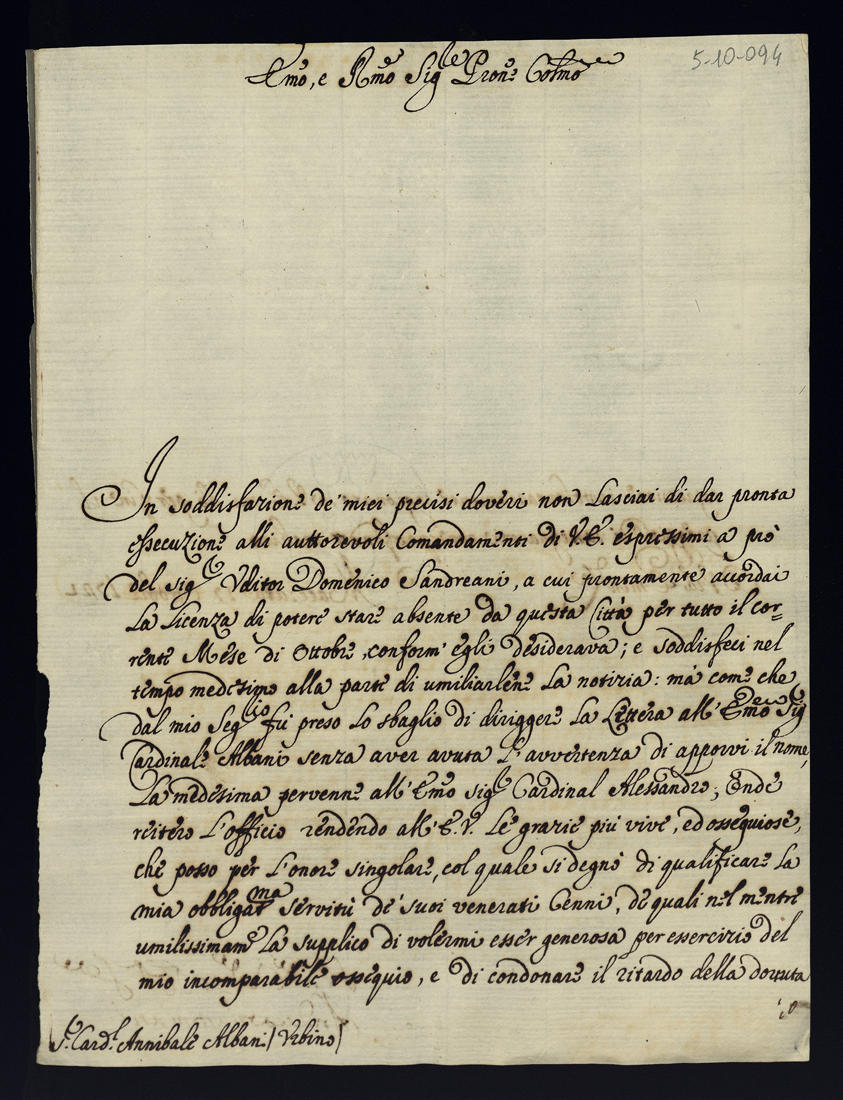 5-10-094
Emo, e Rmo Sigre Prone Colmo
In soddisfazione de' miei precisi doveri non lasciai di dar pronta
essecuzione alli auttorevoli Comandamenti di V.E. espressimi a prò
del Sigr Uditor Domenico Sandreani, a cui prontamente accordai
la Licenza di potere stare absente da questa Città per tutto il cor-
rente Mese di Ottobre, conform' egli desiderava; e soddisfeci nel
tempo medesimo alla parte di umiliarlene la notizia: mà come che
dal mio Segrio fù preso lo sbaglio di diriggere la Lettera all' Emo Sigr
Cardinale Albani senza aver avuta l'avvertenza di apporvi il nome,
La medesima pervenne all' Emo Sigr Cardinal Alessandro; Onde
reitero l'officio rendendo all' E.V. le grazie più vive, ed ossequiose,
che posso per l'onore singolare, col quale si degnò di qualificare la
mia obbligatma servitù de' suoi venerati Cenni, de quali nel mentre
umilissimame la supplico di volermi esser generosa per essercizio del
mio incomparabile ossequio, e di condonare il ritardo della dovuta
Sr Cardl Annibale Albani / Urbino /